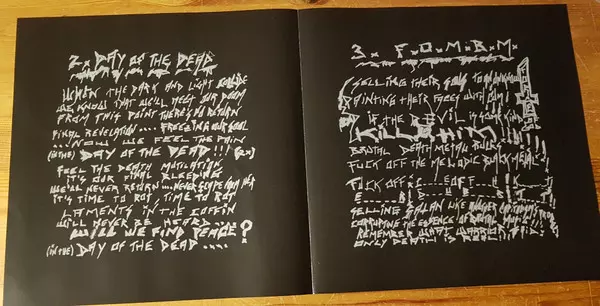 2x DAY OF THE DEAD
WHEN THE DARK AND LIGHT COLLIDE
WE KNOW THAT WE'LL MEET OUR DOOM
FROM THIS POINT THERE'S NO RETURN
FINAL REVELATION.... FREEZING OUR SOUL
....NOW WE FEEL THE PAIN
(IN THE) DAY OF THE DEAD!!! (2x)
FEEL THE DEATH MUTILATION
IT'S OUR FINAL BLEEDING
WE'LL NEVER RETURN....NEVER ESCAPE
IT'S TIME TO ROT TIME TO ROT
LAMENTS IN THE COFFIN
WILL NEVER BE HEARD...
WILL WE FIND PEACE?
(IN THE) DAY OF THE DEAD.....
3x F.O.M.B.M.
SELLING THEIR SOULS TO
PAINTING THEIR FACES WITH
IF THE DEVIL IS
KILL HIM
BRUTAL DEATH METAL RULES
FUCK OFF THE MELODIC BLACK METAL
FUCK OFF
SELLING SATAN LIKE
THE ESSENCE OF BRUTAL
REMEMBER WHAT WARRIOR SAID
ONLY DEATH IS REAL!